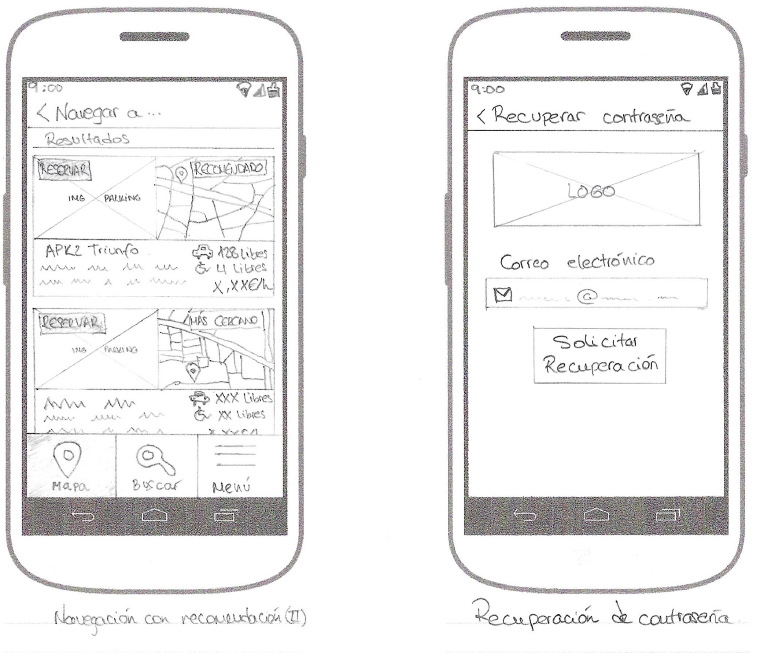 9:00
< Navegar a...
Resultados
RESERVAR
RECOMENDADO
IMG PARKING
APK2 Triunfo
128 Libres
4 Libres
X,XX€/h
RESERVAR
MÁS CERCANO
IMG PARKING
XXX Libres
XX Libres
X,XX€/h
Mapa
Buscar
Menú
Navegación con recomendación (II)
9:00
< Recuperar contraseña
LOGO
Correo electrónico
@
Solicitar
Recuperación
Recuperación de contraseña